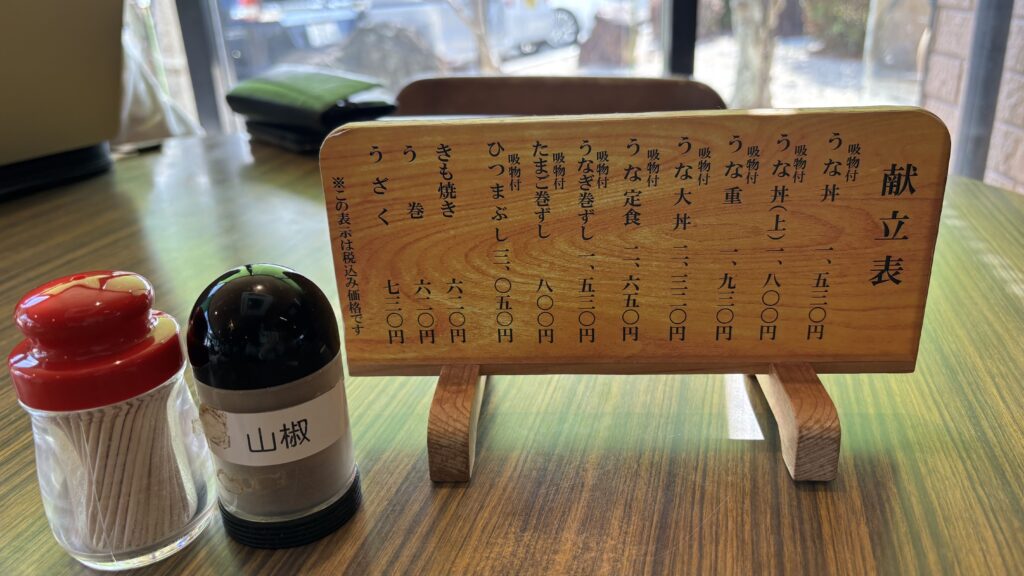 献立表
うな丼 吸物付 一、五三〇円
うな丼(上) 吸物付 一、八〇〇円
うな重 吸物付 一、九三〇円
うな大丼 吸物付 二、三二〇円
うな定食 吸物付 二、六五〇円
うなぎ巻ずし 吸物付 一、五三〇円
たまご巻ずし 吸物付 八〇〇円
ひつまぶし 吸物付 三、〇五〇円
きも焼き 六二〇円
う巻 六二〇円
うざく 七二〇円
※この表示は税込み価格です
山椒